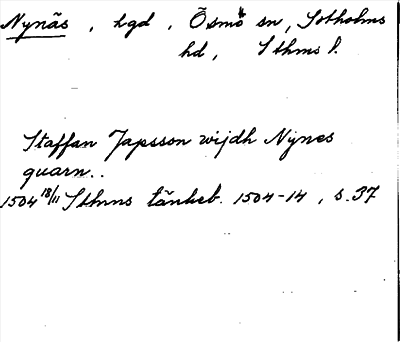 Nynäs, hgd, Ösmo sn, Sotholms
hd, Sthms l.
Staffan Japsson wijdh Nynes
quarn..
1504 18/11 Sthms tänkeb. 1504-14, s. 37